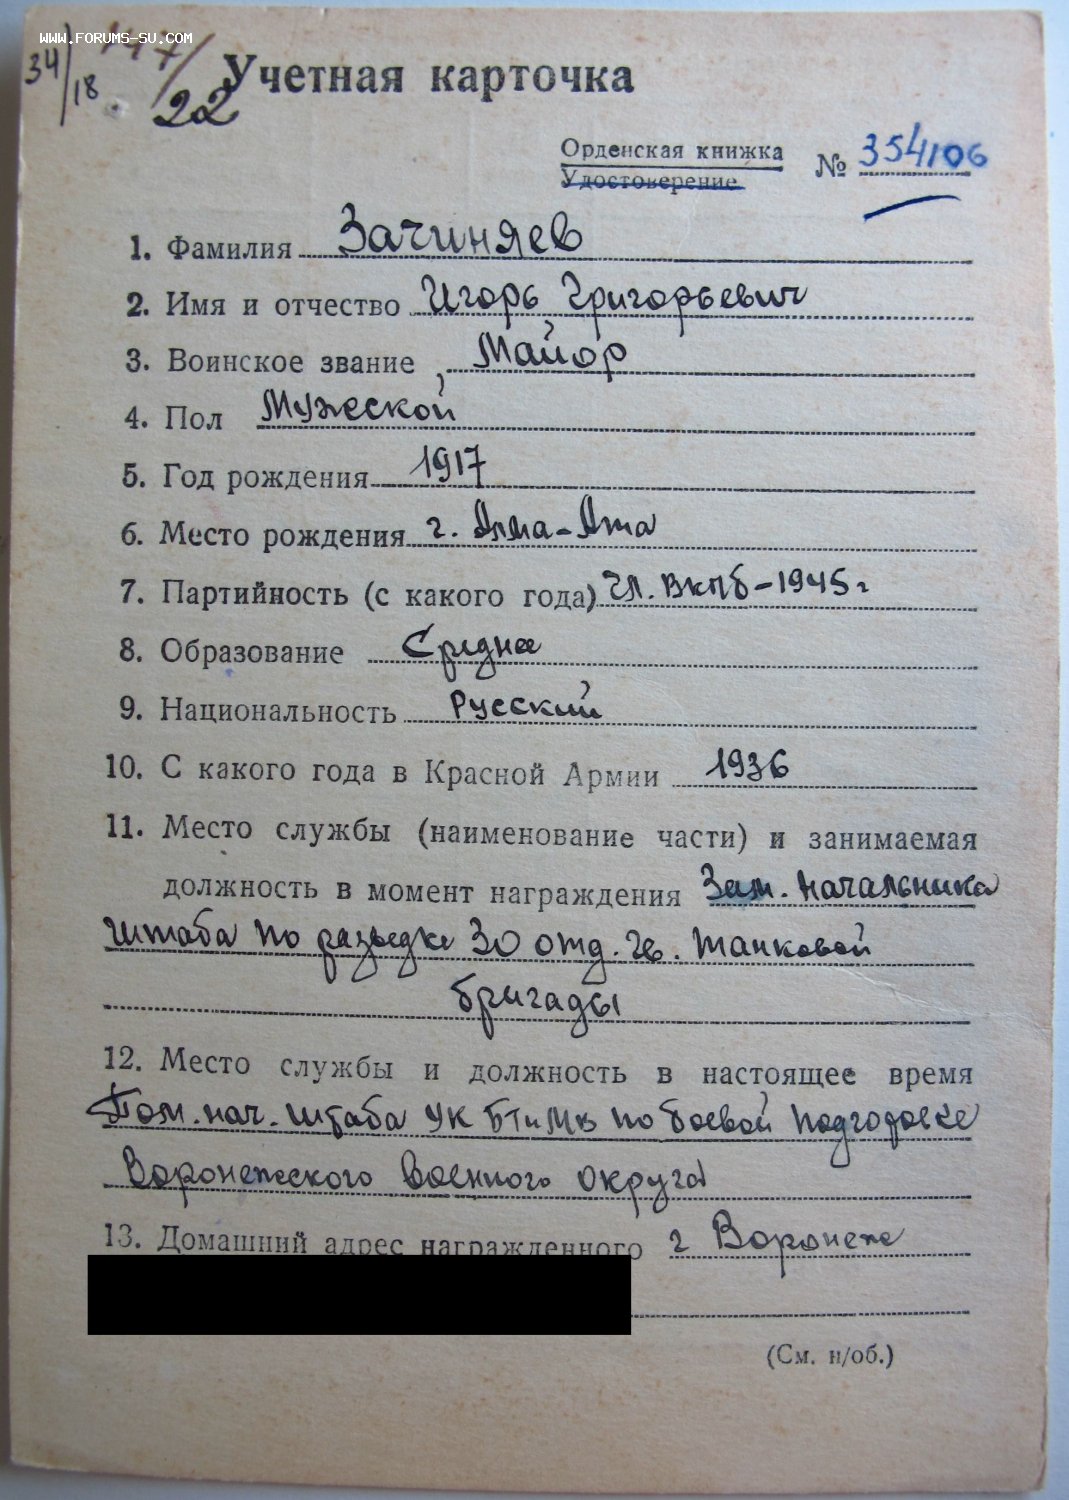 WWW.FORUMS-SU.COM
34/18
22
Учетная карточка
Орденская книжка
Удостоверение
№ 354106
1. Фамилия Зачиняев
2. Имя и отчество Игорь Григорьевич
3. Воинское звание Майор
4. Пол Мужеской
5. Год рождения 1917
6. Место рождения г. Алма-Ата
7. Партийность (с какого года) Чл. ВКПб-1945г
8. Образование Среднее
9. Национальность Русский
10. С какого года в Красной Армии 1936
11. Место службы (наименование части) и занимаемая
должность в момент награждения Зам. Начальника
Штаба по разведке 30 отд. Гв. Танковой
бригады
12. Место службы и должность в настоящее время
Пом. нач. штаба УК БТиМВ по боевой подготовке
Воронежского военного округа
13. Домашний адрес награжденного г Воронеж
(См. н/об.)